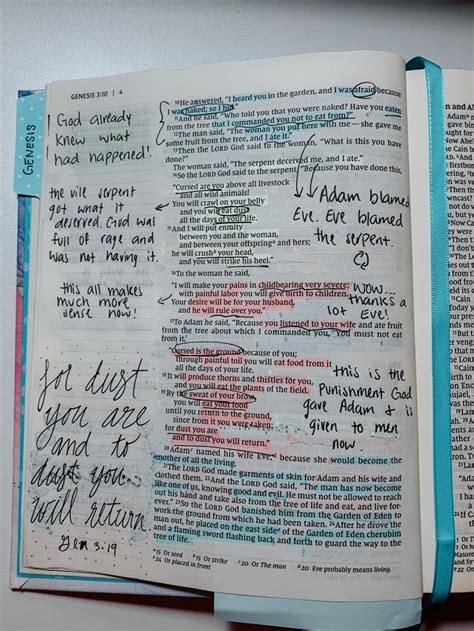 GENESIS 3:10 | 4
GENESIS
God already
knew what
had happened!
the vile serpent
got what it
deserved. God was
full of rage and
was not having it.
this all makes
much more
sense now!
for dust
you are
and to
dust you
will return
Gen 3:19
¹⁰He answered, "I heard you in the garden, and I was afraid because
I was naked; so I hid."
¹¹And he said, "Who told you that you were naked? Have you eaten
from the tree that I commanded you not to eat from?"
¹²The man said, "The woman you put here with me—she gave me
some fruit from the tree, and I ate it."
¹³Then the LORD God said to the woman, "What is this you have
done?"
The woman said, "The serpent deceived me, and I ate."
¹⁴So the LORD God said to the serpent, "Because you have done this,
"Cursed are you above all livestock
and all wild animals!
You will crawl on your belly
and you will eat dust
all the days of your life.
¹⁵And I will put enmity
between you and the woman,
and between your offspring and hers;
he will crush your head,
and you will strike his heel."
¹⁶To the woman he said,
"I will make your pains in childbearing very severe;
with painful labor you will give birth to children.
Your desire will be for your husband,
and he will rule over you."
¹⁷To Adam he said, "Because you listened to your wife and ate fruit
from the tree about which I commanded you, 'You must not eat
from it,'
"Cursed is the ground because of you;
through painful toil you will eat food from it
all the days of your life.
¹⁸It will produce thorns and thistles for you,
and you will eat the plants of the field.
¹⁹By the sweat of your brow
you will eat your food
until you return to the ground,
since from it you were taken;
for dust you are
and to dust you will return."
²⁰Adam named his wife Eve, because she would become the
mother of all the living.
²¹The LORD God made garments of skin for Adam and his wife and
clothed them. ²²And the LORD God said, "The man has now become
like one of us, knowing good and evil. He must not be allowed to reach
out his hand and take also from the tree of life and eat, and live for-
ever." ²³So the LORD God banished him from the Garden of Eden to
work the ground from which he had been taken. ²⁴After he drove the
man out, he placed on the east side of the Garden of Eden cherubim
and a flaming sword flashing back and forth to guard the way to the
tree of life.
ᵃ15 Or seed ᵇ15 Or strike ᶜ20 Or The man ᵈ20 Eve probably means living.
ᵉ24 Or placed in front
Adam blamed
Eve. Eve blamed
the serpent.
WOW...
thanks a
lot Eve!
this is the
punishment God
gave Adam & is
given to men
now.